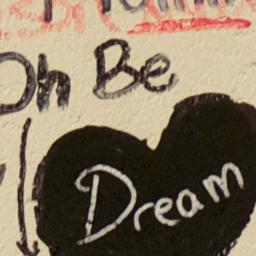 Oh Be
Dream